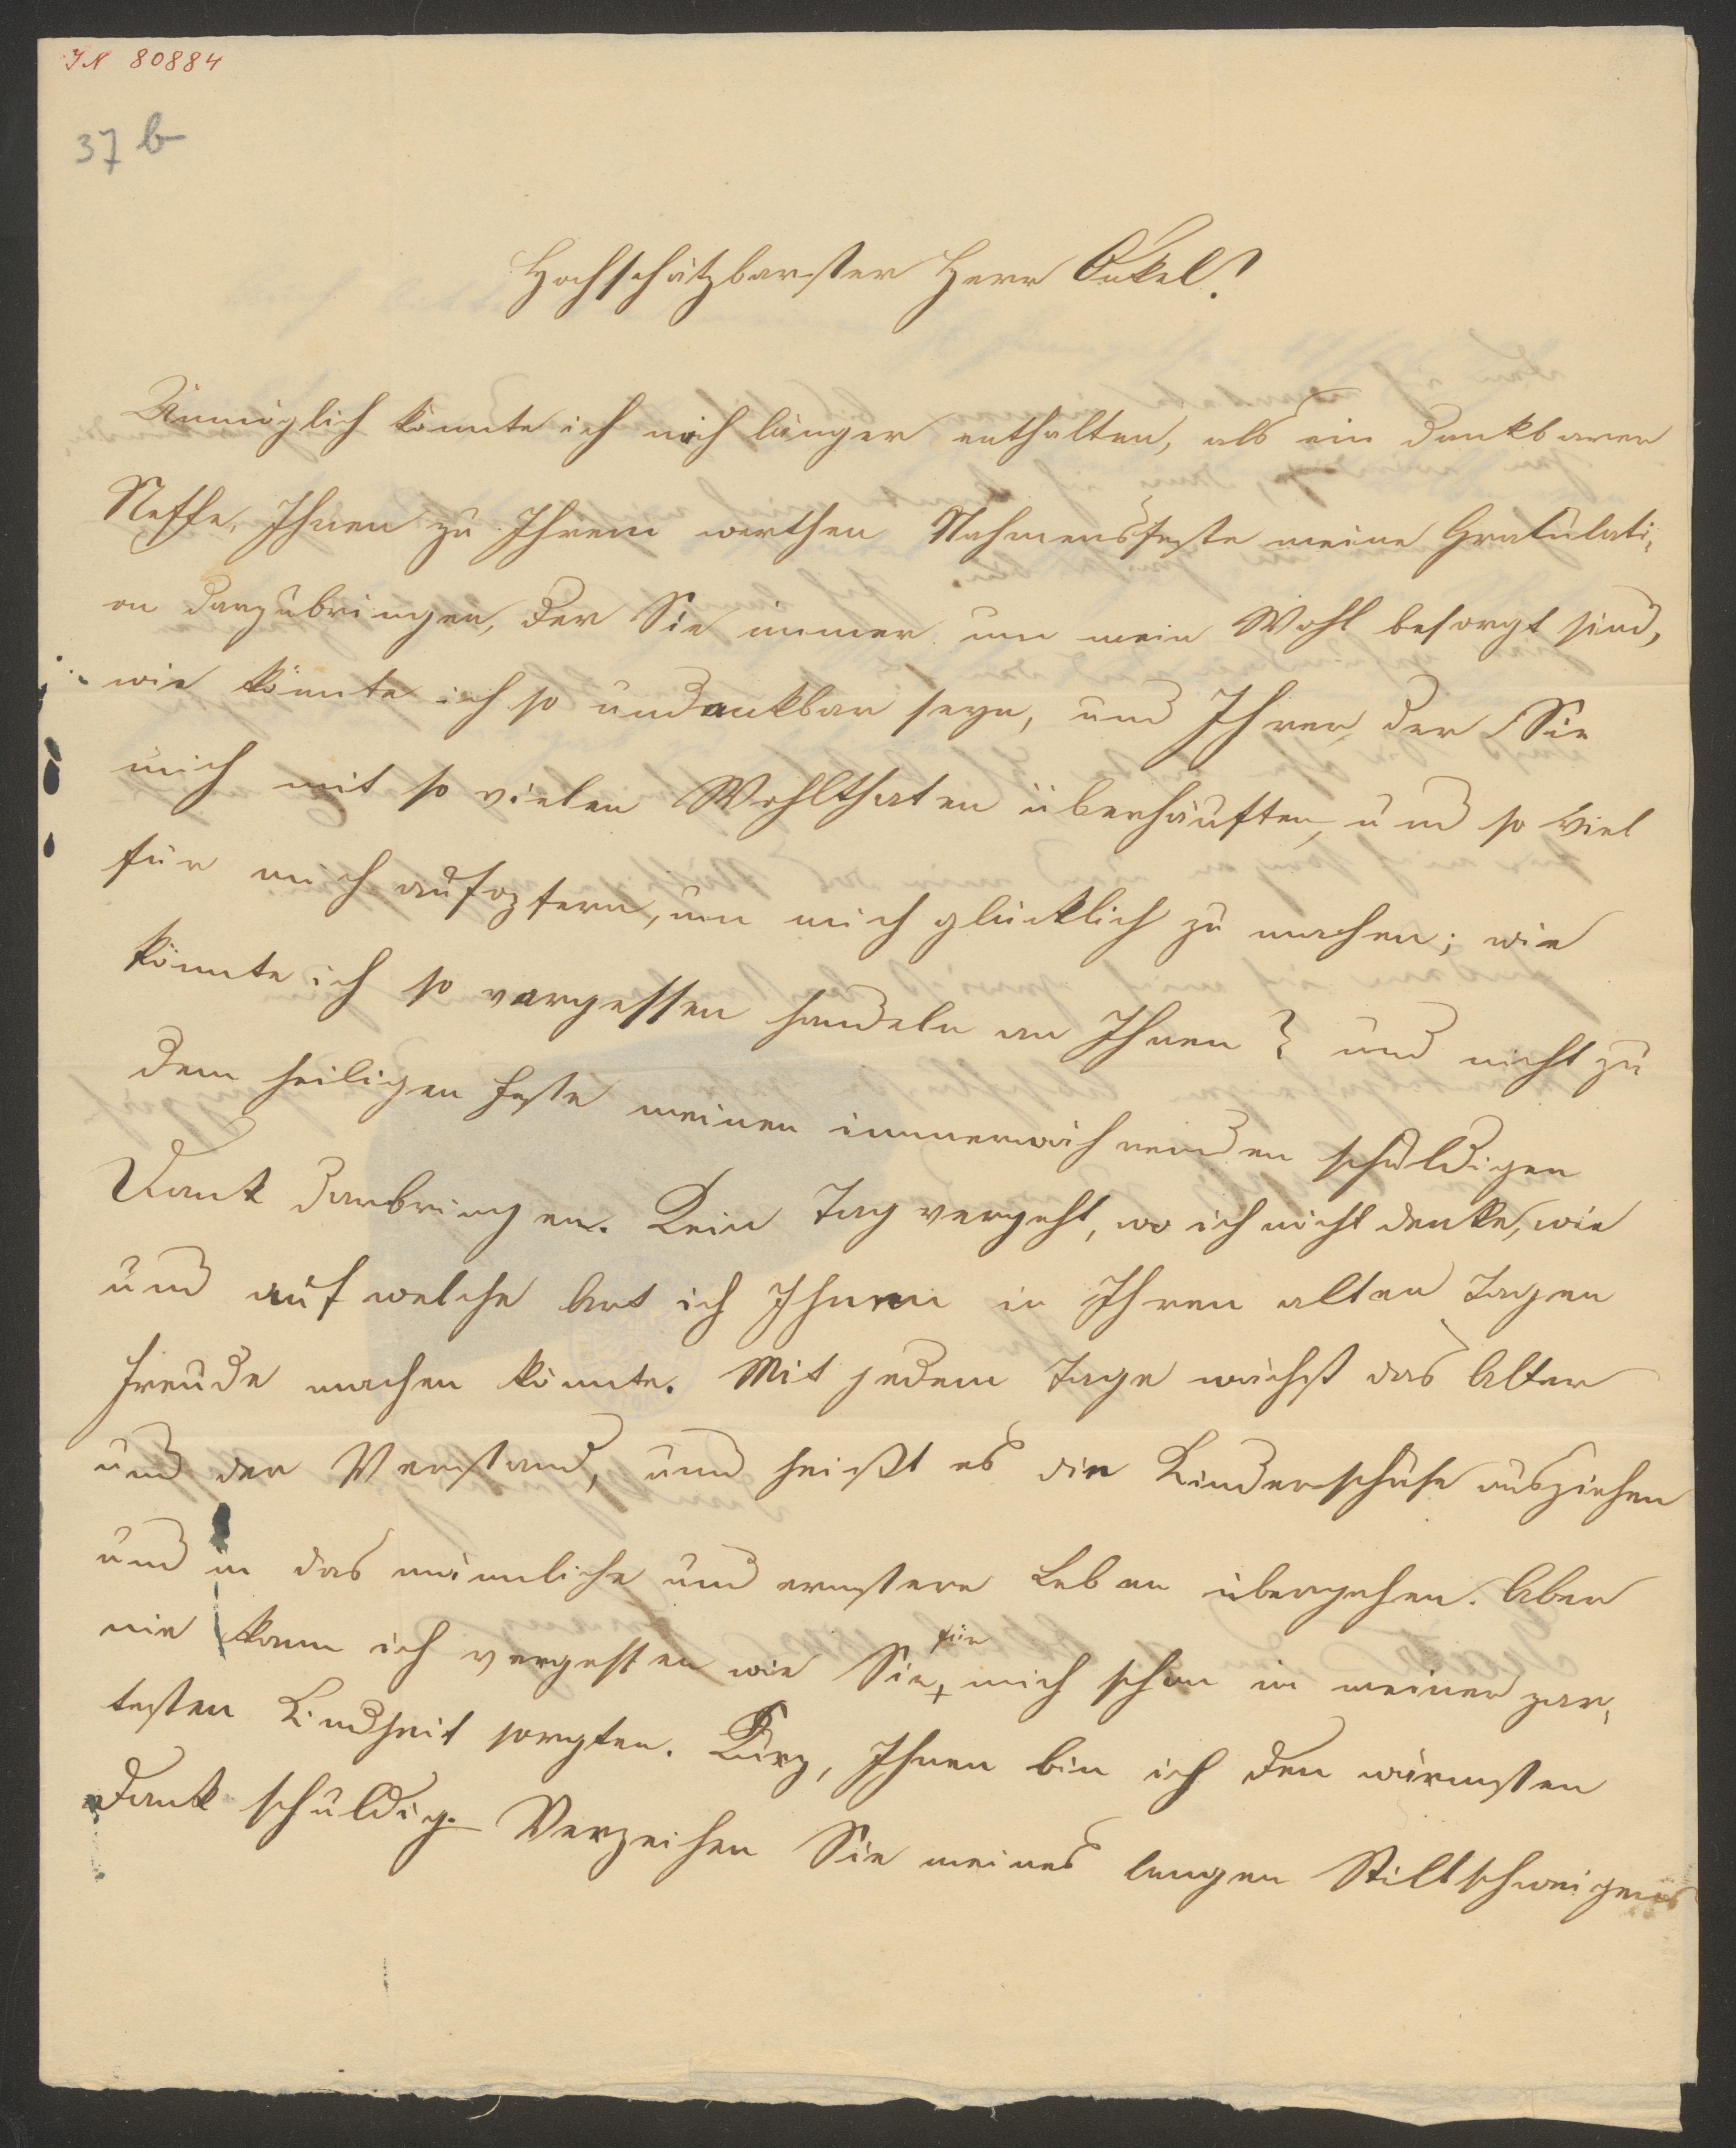 IN 80884
37 b
Hochschätzbarster Herr Onkel!
Unmöglich könnte ich mich länger enthalten, als ein dankbarer
Neffe, Ihnen zu Ihrem werthen Nahmensfeste meine Gratulati,
on darzubringen, der Sie immer um mein Wohl besorgt sind,
wie könnte ich so undankbar seyn, und Ihnen, der Sie
mich mit so vielen Wohlthaten überhäuften, und so viel
für mich aufopfern, um mich glücklich zu machen; wie
könnte ich so vergessen handeln an Ihnen? und nicht zu
dem heiligen Feste meinen immerwährenden schuldigen
Dank darbringen. Kein Tag vergeht, wo ich nicht denke, wie
und auf welche Art ich Ihnen in Ihren alten Tagen
Freude machen könnte. Mit jedem Tage wächst das Alter
und der Verstand, und heißt es die Kinderschuhe ausziehen
und in das männliche und ernstere Leben übergehen. Aber
nie kann ich vergessen wie Sie für mich schon in meiner zar,
testen Kindheit sorgten. Kurz, Ihnen bin ich den wärmsten
Dank schuldig. Verzeihen Sie meines langen Stillschweigens